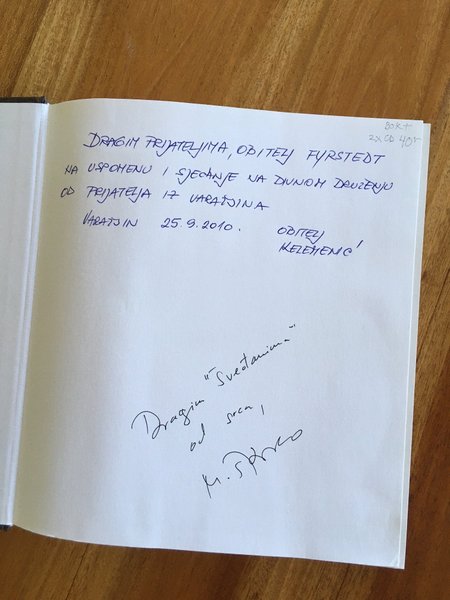 BOK +
2xCD 40:-
DRAGIM PRIJATELJIMA, OBITELJ FYRSTEDT
NA USPOMENU I SJEĆANJE NA DIVNOM DRUŽENJU
OD PRIJATELJA IZ VARAŽDINA
VARAŽDIN 25.9.2010. OBITELJ
KELEMENIĆ
Dragim "Sveđanima"
od srca,